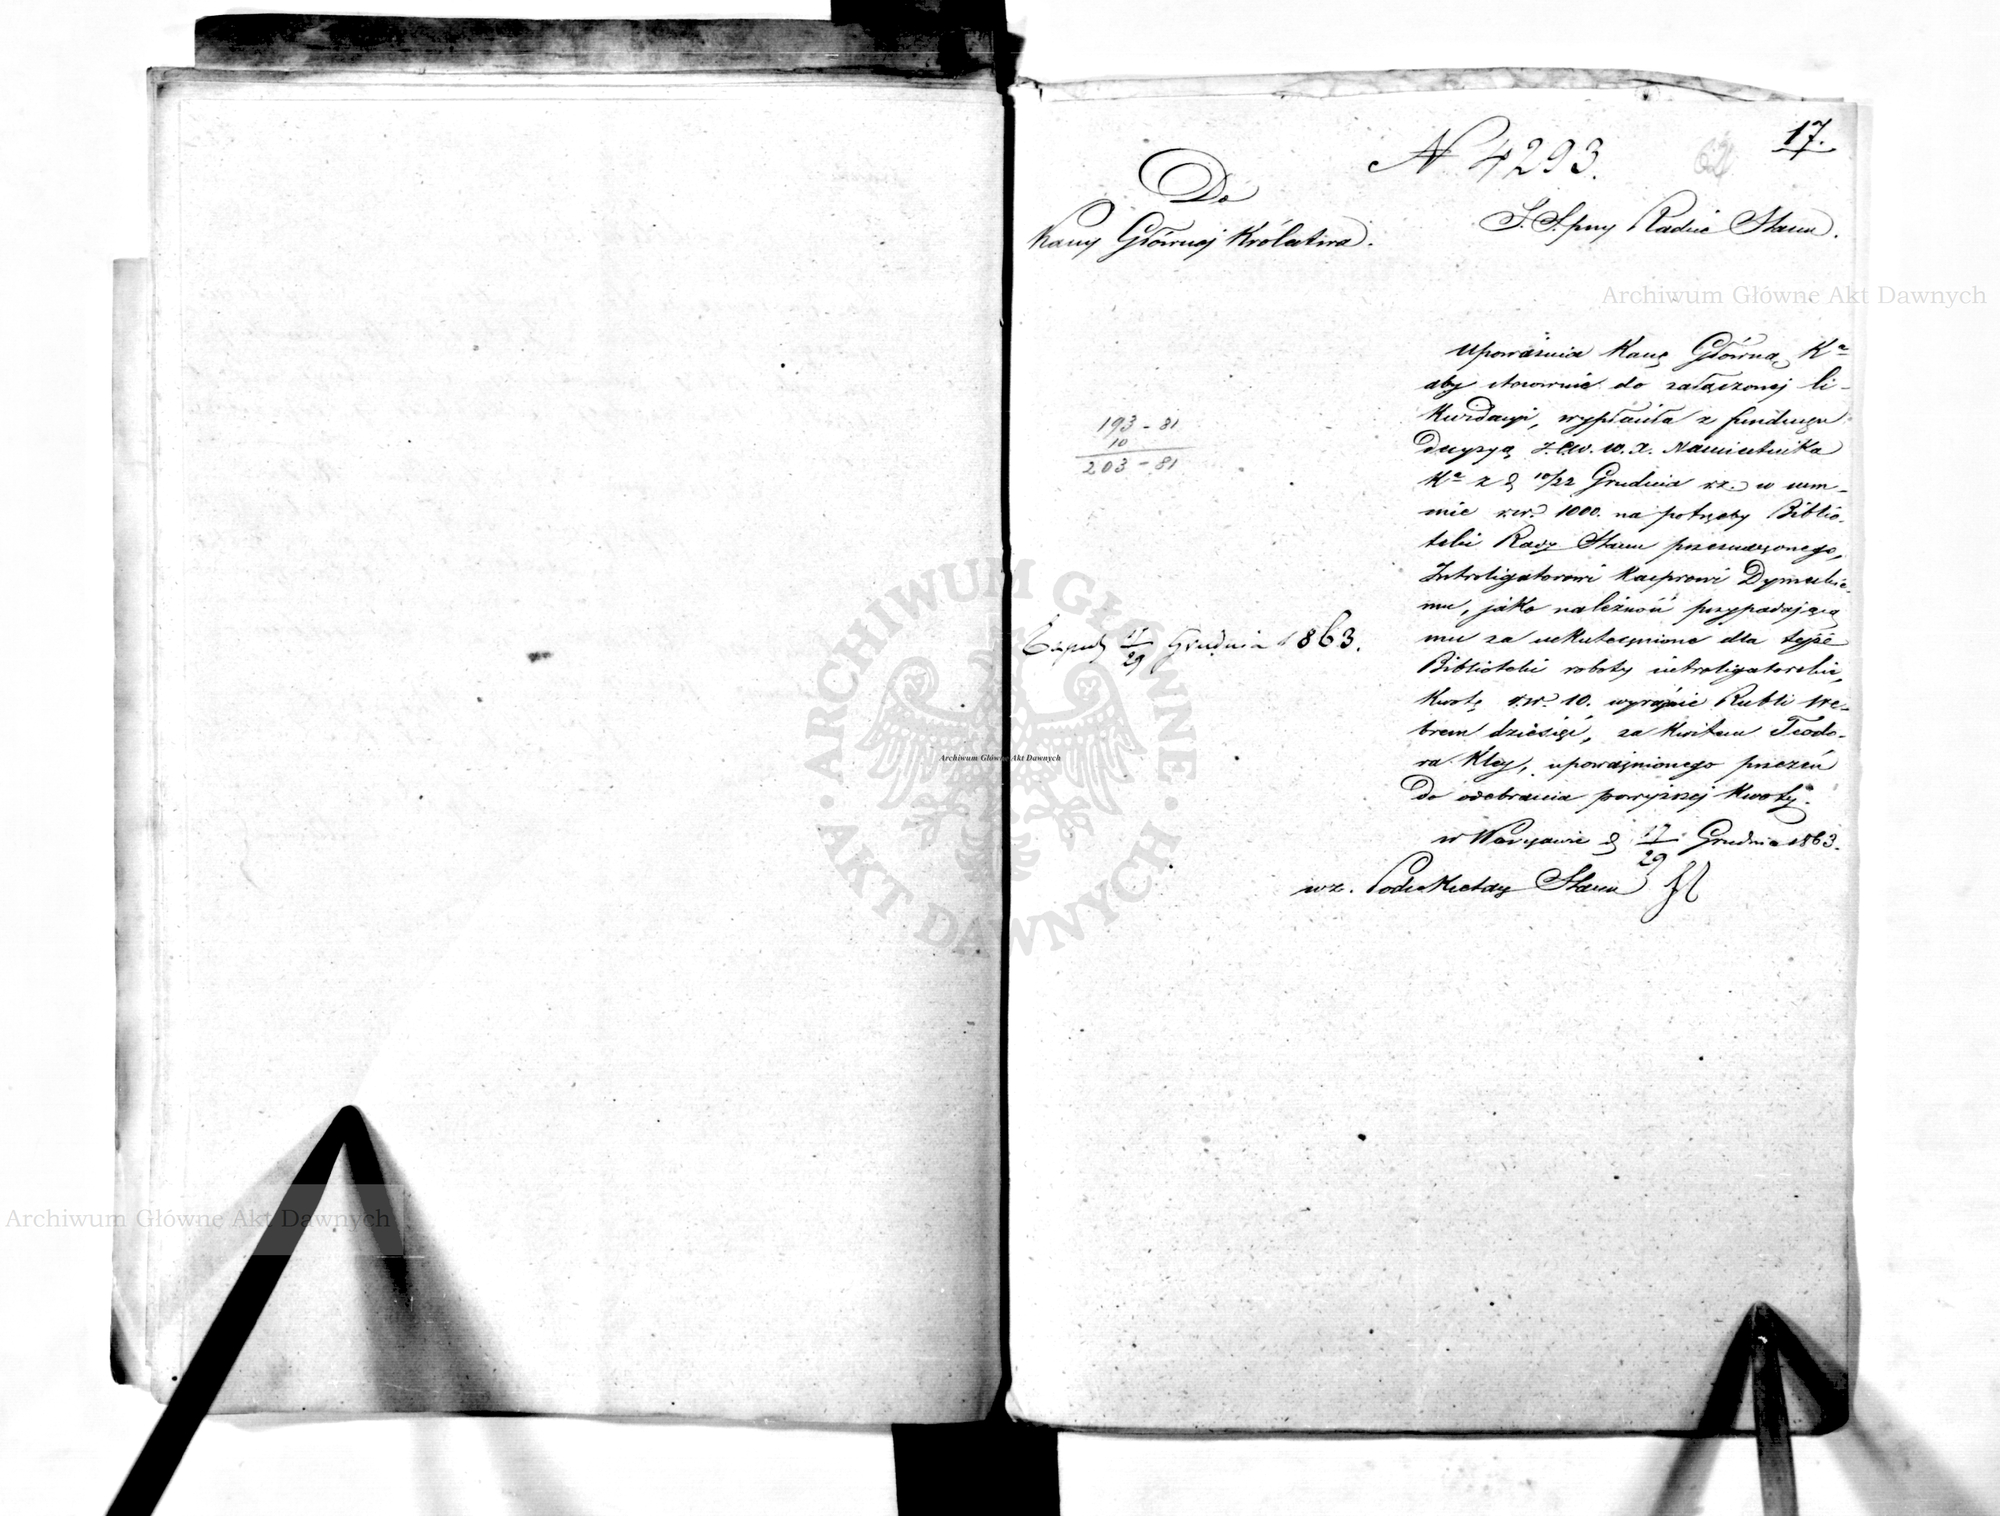 17.
N 4293.
62
Do
Kassy Głównej Królestwa.
S. S. przy Radzie Stanu.
Archiwum Główne Akt Dawnych
Upoważnia Kassę Główną Kа
aby stosownie do załączonej li-
kwidacyi, wypłaciła z funduszu
Decyzyą J.C.W. W. X. Namiestnika
Kа z d 10/22 Grudnia r.z. w sum-
mie rsr. 1000. na potrzeby Biblio-
teki Rady Stanu przeznaczonego,
Introligatorowi Kacprowi Dymskie-
mu, jako należność przypadającą
mu za uskutecznione dla tejże
Biblioteki roboty introligatorskie,
kwotę rsr. 10. wyraźnie Rubli sre-
brem dziesięć, za kwitem Teodo-
ra Kley, upoważnionego przezeń
do odebrania powyższej kwoty.
w Warszawie d 17/29 Grudnia 1863.
wz. Podsekretarz Stanu
193 - 81
10
203 - 81
17/29 Grudnia 1863.
ARCHIWUM GŁÓWNE
AKT DAWNYCH
Archiwum Główne Akt Dawnych
Archiwum Główne Akt Dawnych